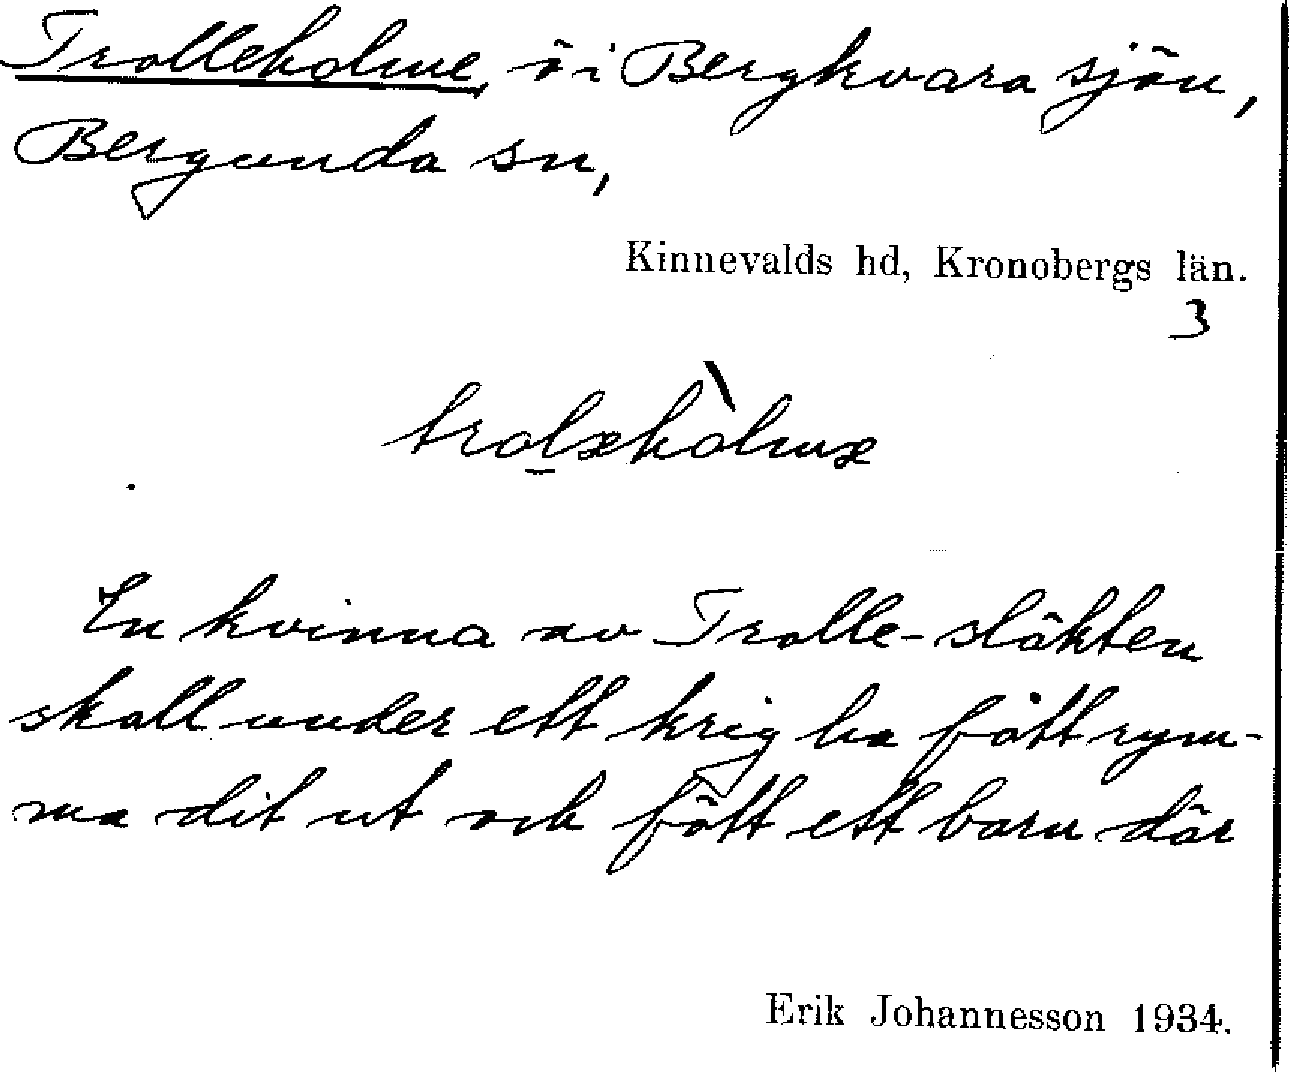 Trolleholme, ö i Bergkvara sjön,
Bergunda sn,
Kinnevalds hd, Kronobergs län.
3
trol̠ækòlmæ
En kvinna av Trolle-släkten
skall under ett krig ha fått rym-
ma dit ut och fött ett barn där
Erik Johannesson 1934.